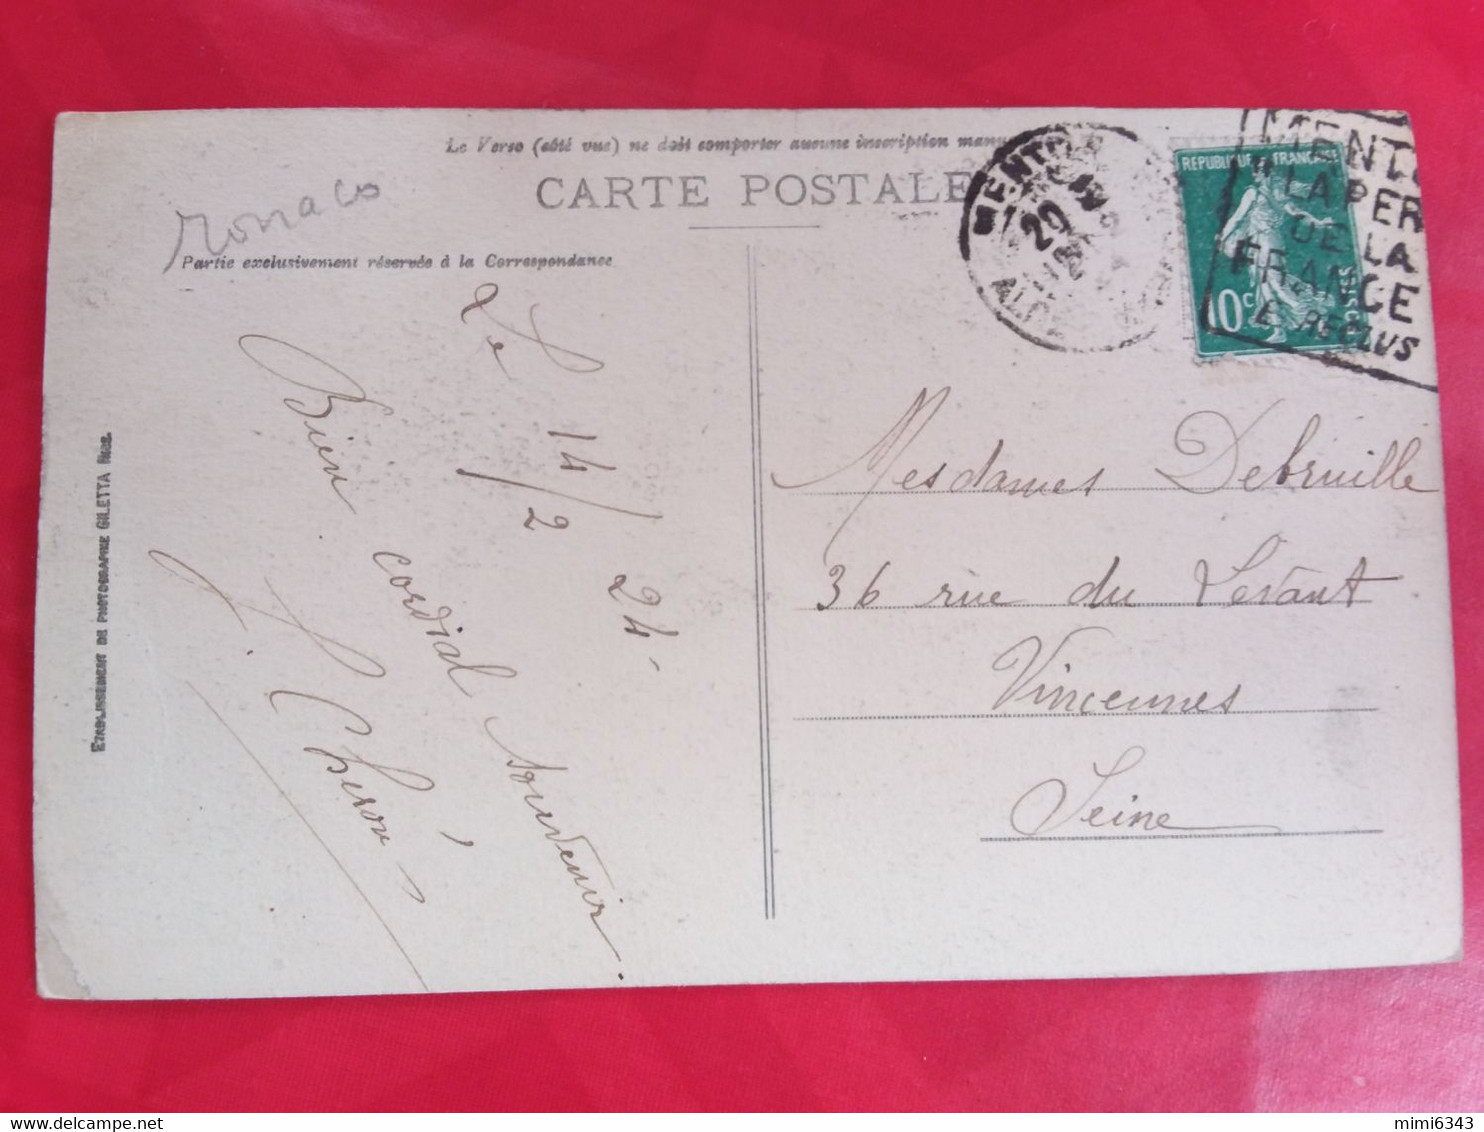 Le Verso (côté vue) ne doit comporter aucune inscription manu
CARTE POSTALE
Monaco
Partie exclusivement réservée à la Correspondance
Le 14/2 24-
Bien cordial souvenir.
J. Chéron
ETABLISSEMENT DE PHOTOGRAPHIE GILETTA Nice.
MENTON
20
REPUBLIQUE FRANÇAISE
10c
POSTES
MENTO
LA PER
DE LA
FRANCE
E. RECLUS
Mesdames Debruille
36 rue du Levant
Vincennes
Seine
mimi6343